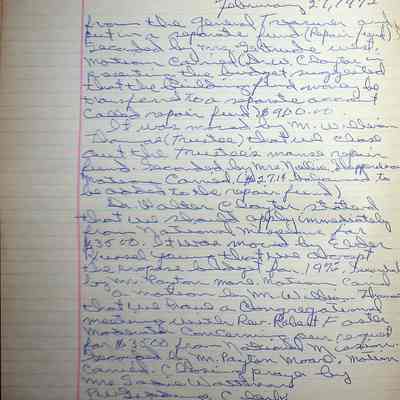 February 27, 1972
from the General Treasurer and
put in a separate fund (Repair fund)
Seconded by Mrs. Gertrude West.
Motion Carried. Dr. W. Claytor in
presenting the budget suggested
that the Building fund money be
transferred to a separate account
called repair fund $900.00.
It was moved by Mr. William
Thomas (Trustee) that we close
out the Trustees manse repair
fund. Seconded by Mrs. Nellie
motion Carried. ( to
be added to the repair fund)
Dr. Walter Claytor stated
that we should apply immediately
from National Missions for
$3500. It was moved by Elder
Russel Young that we adopt
the budget for 1972. Seconded
by Mr. Payton Moore. Motion Carried
a motion by Mr. William Thomas
that we have a Congregational
meeting with Rev. Robert F.
Moderator our request
for $3500 from National Missions.
Seconded by Mr. Payton Moore. Motion
Carried. Closing prayer by
Mrs. Sadie
Clerk